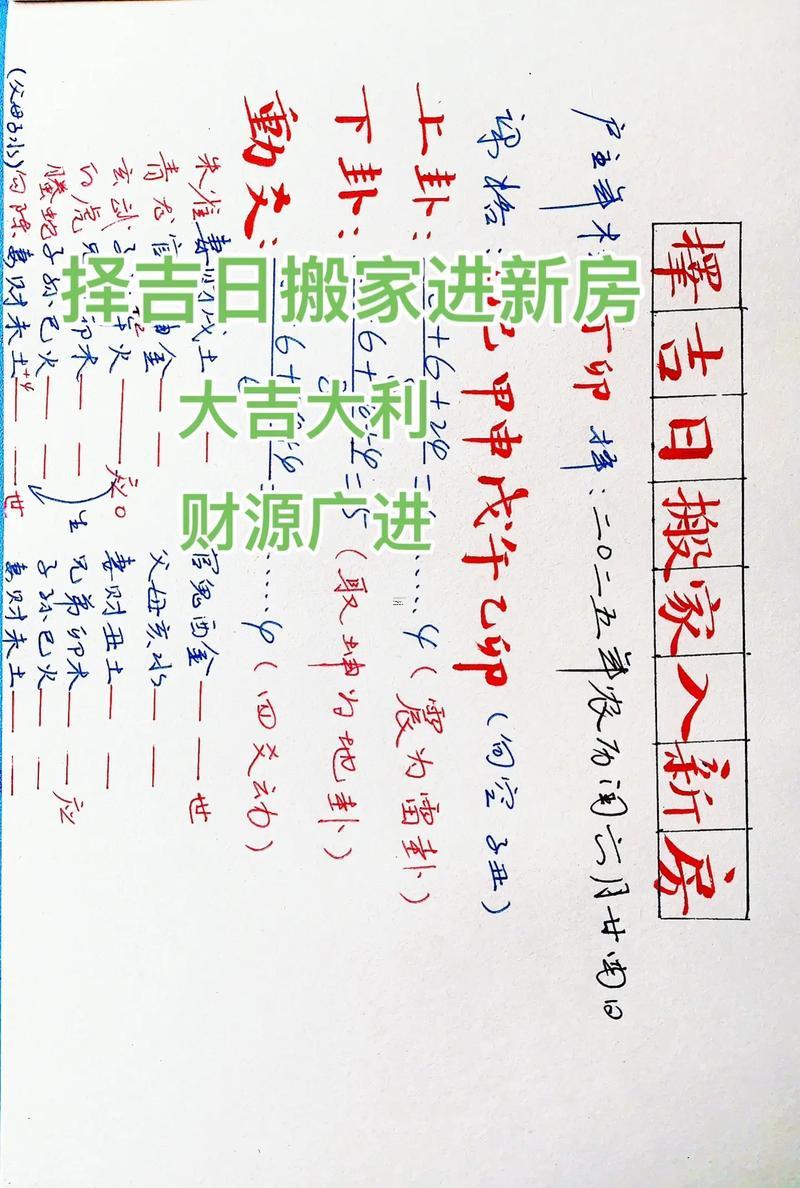 择吉日搬家进新房
大吉大利
财源广进
擇吉日搬家入新房
丁卯 择:二〇二五年农历闰六月廿
甲申戊午乙卯(旬空子丑)
上卦: +6+24= ……4(震为雷卦)
下卦: 6+ =15(取坤为地卦)
動爻: 6+ ……4(四爻动)
朱雀 妻 戌土
青龙 官 金 官鬼酉金 世
玄武 火 父母亥水
白虎 卯木 应 妻财丑土
螣蛇 子孙巳火 兄弟卯木 应
勾陈 妻财未土 世 子孙巳火
妻财未土
生